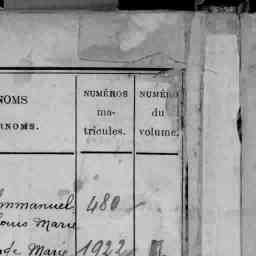 NOMS
RNOMS.
NUMÉROS
ma-
tricules.
NUMÉRO
du
volume.
mmanuel, 480
Louis Marie
de Marie 1922